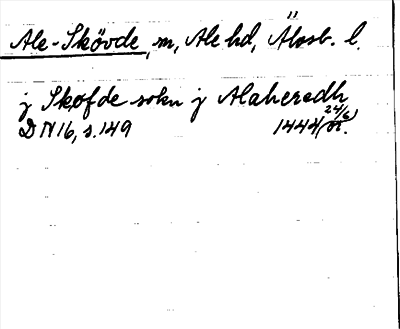 Ale-Skövde, sn, Ale hd, Älvsb. l.
j Skofde sokn j Alaheredh
DN 16, s. 149 1444 (24/6) or.